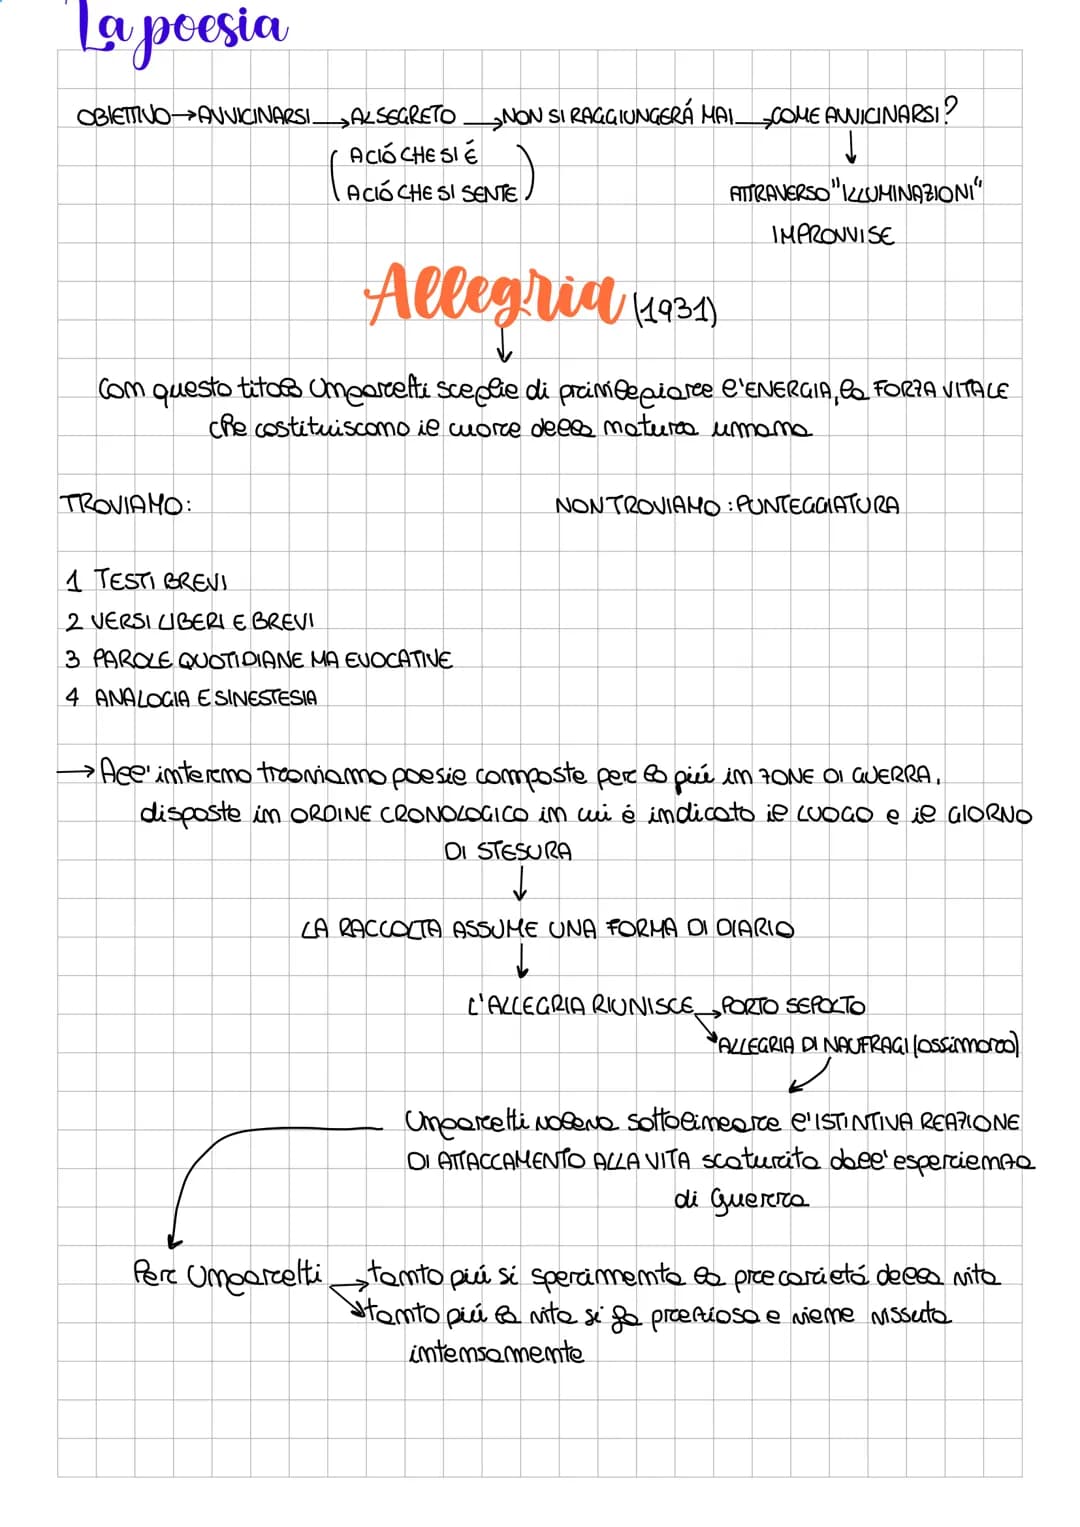 La poesia
OBIETTIVO→AVVICINARSI→AL SEGRETO→NON SI RAGGIUNGERÁ MAI→COME AVVICINARSI?
(A CIÓ CHE SI É
A CIÓ CHE SI SENTE)
ATTRAVERSO "ILLUMINAZIONI"
IMPROVVISE
Allegria (1931)
Con questo titolo Ungaretti sceglie di privilegiare l'ENERGIA, la FORZA VITALE
che costituiscono il cuore della natura umana
TROVIAMO:
NON TROVIAMO: PUNTEGGIATURA
1 TESTI BREVI
2 VERSI LIBERI E BREVI
3 PAROLE QUOTIDIANE MA EVOCATIVE
4 ANALOGIA E SINESTESIA
→All'interno troviamo poesie composte per lo piú in ZONE DI GUERRA,
disposte in ORDINE CRONOLOGICO in cui é indicato il LUOGO e il GIORNO
DI STESURA
LA RACCOLTA ASSUME UNA FORMA DI DIARIO
L'ALLEGRIA RIUNISCE→PORTO SEPOLTO
ALLEGRIA DI NAUFRAGI (ossimoro)
Ungaretti voleva sottolineare l'ISTINTIVA REAZIONE
DI ATTACCAMENTO ALLA VITA scaturita dall'esperienza
di Guerra
Per Ungaretti→tanto piú si sperimenta la precarietá della vita
→tanto piú la vita si fa preziosa e viene vissuta
intensamente